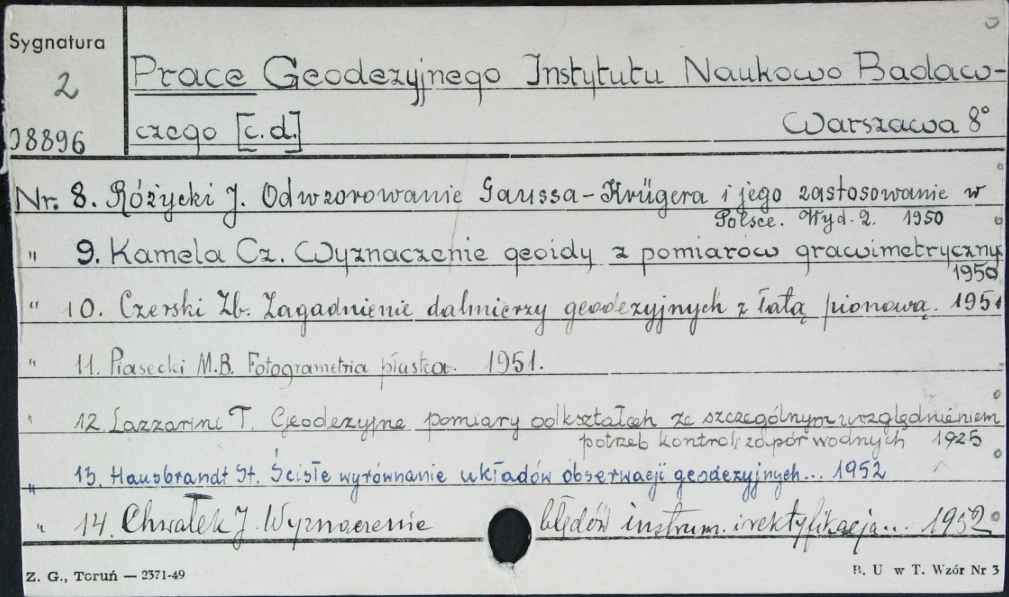 Sygnatura
2
Prace Geodezyjnego Instytutu Naukowo Badaw-
czego [c.d.] Warszawa 8°
08896
Nr. 8. Różycki J. Odwzorowanie Gaussa-Krügera i jego zastosowanie w
Polsce. Wyd. 2. 1950
" 9. Kamela Cz. Wyznaczenie geoidy z pomiarów grawimetryczny
1950
" 10. Czerski Zb. Zagadnienie dalmierzy geodezyjnych z łatą pionową. 1951
" 11. Piasecki M.B. Fotogrametria płaska. 1951.
" 12 Lazzarini T. Geodezyjne pomiary odkształceń ze szczególnym uwzględnieniem
potrzeb kontroli zapór wodnych 1925
" 13. Hausbrandt St. Ścisłe wyrównanie układów obserwacji geodezyjnych... 1952
" 14. Chwałek J. Wyznaczenie błędów instrum. i rektyfikacja... 1952
Z. G., Toruń — 2371-49 B. U w T. Wzór Nr 3